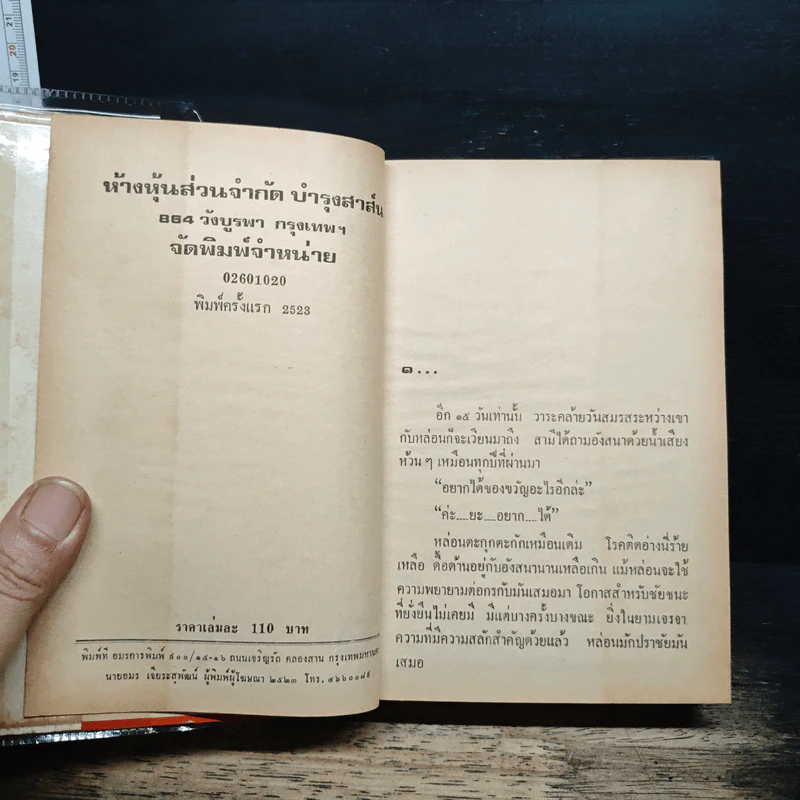 21
20
19
ห้างหุ้นส่วนจำกัด บำรุงสาส์น
864 วังบูรพา กรุงเทพฯ
จัดพิมพ์จำหน่าย
02601020
พิมพ์ครั้งแรก 2523
ราคาเล่มละ 110 บาท
พิมพ์ที่ อมรการพิมพ์ ๙๐๐/๑๕-๑๖ ถนนเจริญรัถ คลองสาน กรุงเทพมหานคร
นายอมร เจียระสุพัฒน์ ผู้พิมพ์ผู้โฆษณา ๒๕๒๓ โทร. ๔๖๖๐๐๘๙
๑...
อีก ๑๕ วันเท่านั้น วาระคล้ายวันสมรสระหว่างเขา
กับหล่อนก็จะเวียนมาถึง สามีได้ถามอังสนาด้วยน้ำเสียง
ห้วน ๆ เหมือนทุกปีที่ผ่านมา
“อยากได้ของขวัญอะไรอีกล่ะ”
“ค่ะ....ยะ....อยาก....ได้”
หล่อนตะกุกตะกักเหมือนเดิม โรคติดอ่างนี้ร้าย
เหลือ ดื้อด้านอยู่กับอังสนานานเหลือเกิน แม้หล่อนจะใช้
ความพยายามต่อกรกับมันเสมอมา โอกาสสำหรับชัยชนะ
ที่ยั่งยืนไม่เคยมี มีแต่บางครั้งบางขณะ ยิ่งในยามเจรจา
ความที่มีความสลักสำคัญด้วยแล้ว หล่อนมักปราชัยมัน
เสมอ